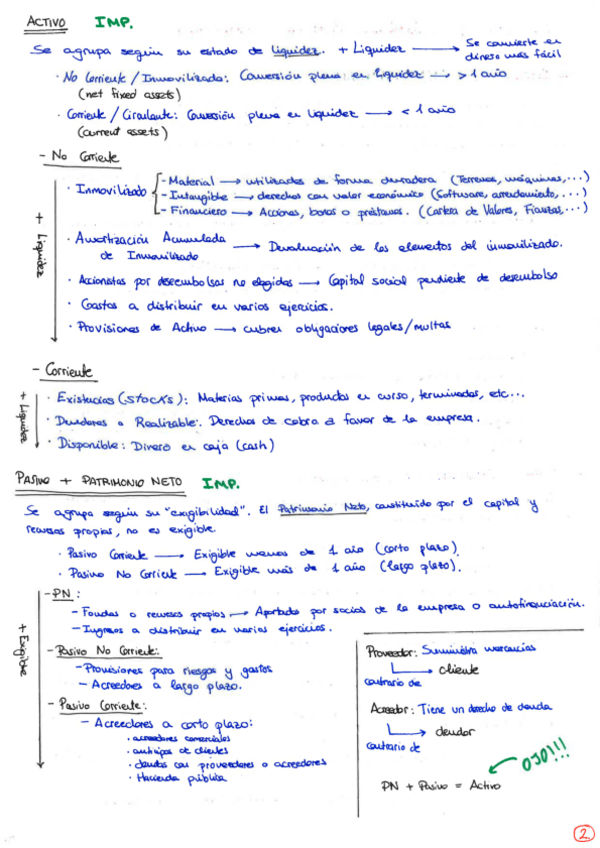 ACTIVO IMP.
Se agrupa según su estado de liquidez. + Liquidez → Se convierte en
dinero más fácil
· No Corriente / Inmovilizado: Conversión plena en liquidez → > 1 año
(net fixed assets)
· Corriente / Circulante: Conversión plena en liquidez → < 1 año
(current assets)
- No Corriente
+ Liquidez
· Inmovilizado
- Material → utilizados de forma duradera (Terrenos, máquinas,...)
- Intangible → derechos con valor económico (Software, arrendamiento,...)
- Financiero → Acciones, bonos o préstamos. (Cartera de Valores, Fianzas,...)
· Amortización Acumulada → Devaluación de los elementos del inmovilizado.
de Inmovilizado
· Accionistas por desembolsos no elegidos → Capital social pendiente de desembolso
· Gastos a distribuir en varios ejercicios.
· Provisiones de Activo → cubrir obligaciones legales/multas
- Corriente
+ Liquidez
· Existencias (stocks): Materias primas, productos en curso, terminados, etc...
· Deudores o Realizable: Derechos de cobro a favor de la empresa.
· Disponible: Dinero en caja (cash)
PASIVO + PATRIMONIO NETO IMP.
Se agrupa según su "exigibilidad". El Patrimonio Neto, constituido por el capital y
recursos propios, no es exigible.
· Pasivo Corriente → Exigible menos de 1 año (corto plazo).
· Pasivo No Corriente → Exigible más de 1 año (largo plazo).
+ Exigible
- PN:
- Fondos o recursos propios → Aportados por socios de la empresa o autofinanciación.
- Ingresos a distribuir en varios ejercicios.
- Pasivo No Corriente:
- Provisiones para riesgos y gastos
- Acreedores a largo plazo.
- Pasivo Corriente:
- Acreedores a corto plazo:
· acreedores comerciales
· anticipos de clientes
· deudas con proveedores o acreedores
· Hacienda pública
Proveedor: Suministra mercancías
→ cliente
contrario de
Acreedor: Tiene un derecho de deuda
→ deudor
contrario de
OJO!!!
PN + Pasivo = Activo
2